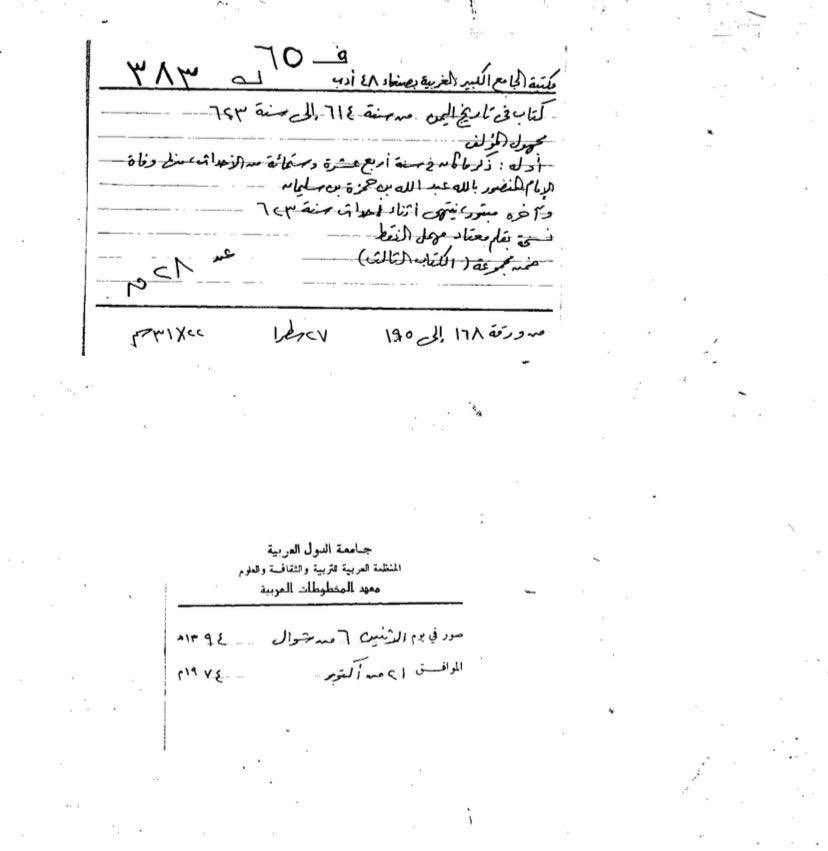 ف ٦٥
مكتبة الجامع الكبير الغربية بصنعاء ٤٨ أدب ٣٨٣
كتاب في تاريخ اليمن من سنة ٦١٤ إلى سنة ٦٢٣
مجهول المؤلف
أوله: ذكر ما كان في سنة أربع عشرة وستمائة من الأحداث، منها وفاة
الإمام المنصور بالله عبد الله بن حمزة بن سليمان
وآخره مبتور، ينتهي أثناء أحداث سنة ٦٢٣
نسخة بقلم معتاد مهمل النقط
ضمن مجموعة (الكتاب الثالث)
٢٨
من ورقة ١٦٨ إلى ١٩٥ ٢٧ سطرا ٢٢×٣١سم
جامعة الدول العربية
المنظمة العربية للتربية والثقافة والعلوم
معهد المخطوطات العربية
صور في يوم الاثنين ٦ من شوال ١٣٩٤ه
الموافق ٢١ من أكتوبر ١٩٧٤م